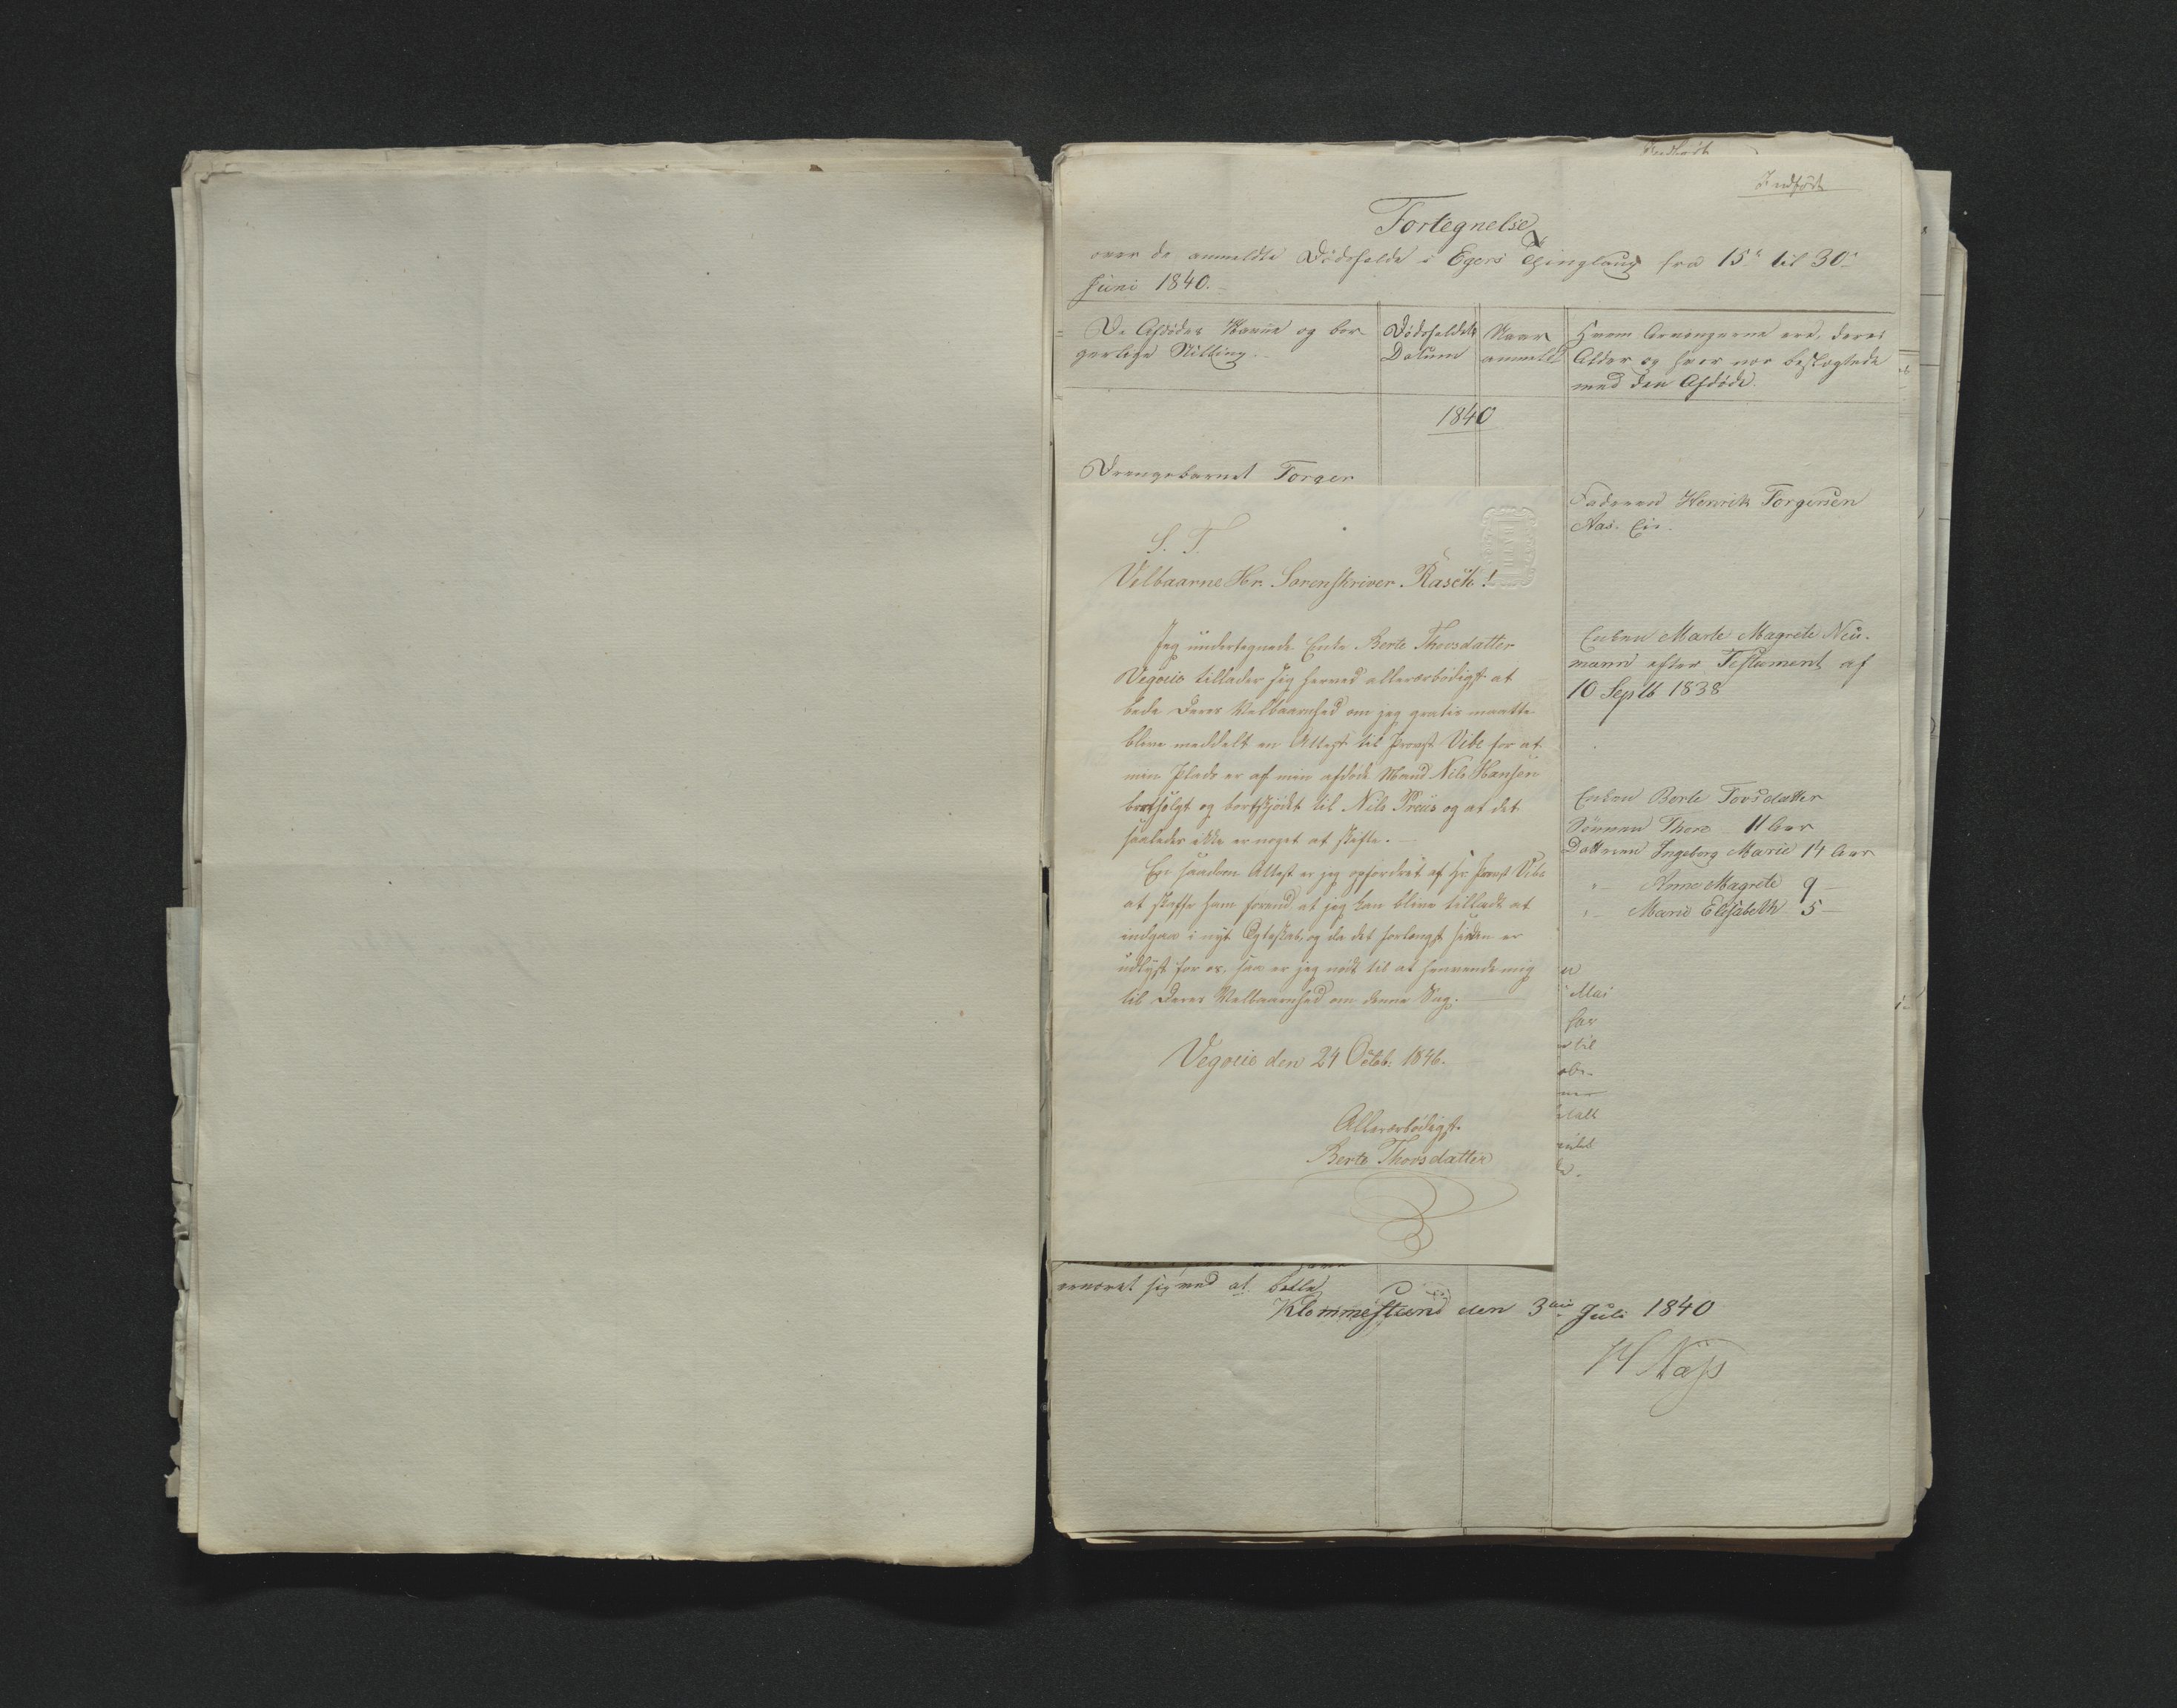 Indført
Fortegnelse
over de anmeldte Dødsfalde i Egers Thinglaug fra 15de til 30te
Juni 1840.
De Afdødes Navne og bor-
gerlige Stilling.
Dødsfaldets
Datum
Naar
anmeldt
Hvem Arvingerne ere, deres
Alder og hvor nær beslægtede
med den Afdøde.
1840
Drengebarnet Torger
Faderen Henrik Torgersen
Aas. Eie.
Enken Marte Magrete Neu-
mann efter Testament af
10 Septb 1838
Enken Berte Torsdatter
Sønnen Thore 11 Aar
Døttrene Ingeborg Marie 14 Aar
"– Anne Magrete 9 –
"– Marie Elisabeth 5 –
S. T.
Velbaarne Hr. Sorenskriver Rasch!
Jeg undertegnede Enke Berte Thorsdatter
Vegoeie tillader sig herved allerærbødigst at
bede Deres Velbaarnhed om jeg gratis maatte
blive meddelt en Attest til Provst Vibe for at
min Plads er af min afdøde Mand Nils Hansen
bortsolgt og bortskjødet til Nils Preus og at det
saaledes ikke er noget at skifte.
En saadan Attest er jeg opfordret af Hr. Provst Vibe
at skaffe ham forend, at jeg kan blive tilladt at
indgaa i nyt Egteskab, og da det forlængst siden er
udlyst for os, saa er jeg nødt til at henvende mig
til Deres Velbaarnhed om denne Sag.
Vegoeie den 24 Octob. 1846.
Allerærbødigst
Berte Thorsdatter
Mai
har
til
ernæret sig ved at betle
Klommestein den 3die Juli 1840
H Næss